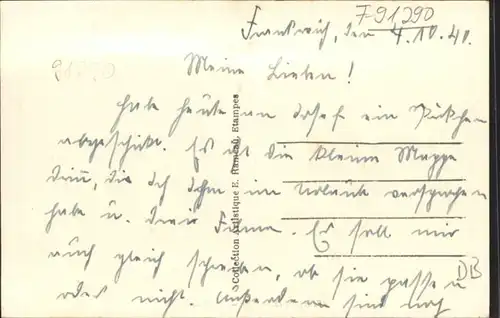 F91290
Frankreich, den 4.10.40.
91290
Meine Lieben!
Habe heute an Josef ein Päckchen
abgeschickt. Es ist die kleine Mappe
drin, die ich ihm im Urlaub versprochen
habe u. drei Filme. Er soll mir
auch gleich schreiben, ob sie passen
oder nicht. Außerdem sind noch
DB
Collection Artistique E. Rameau, Etampes